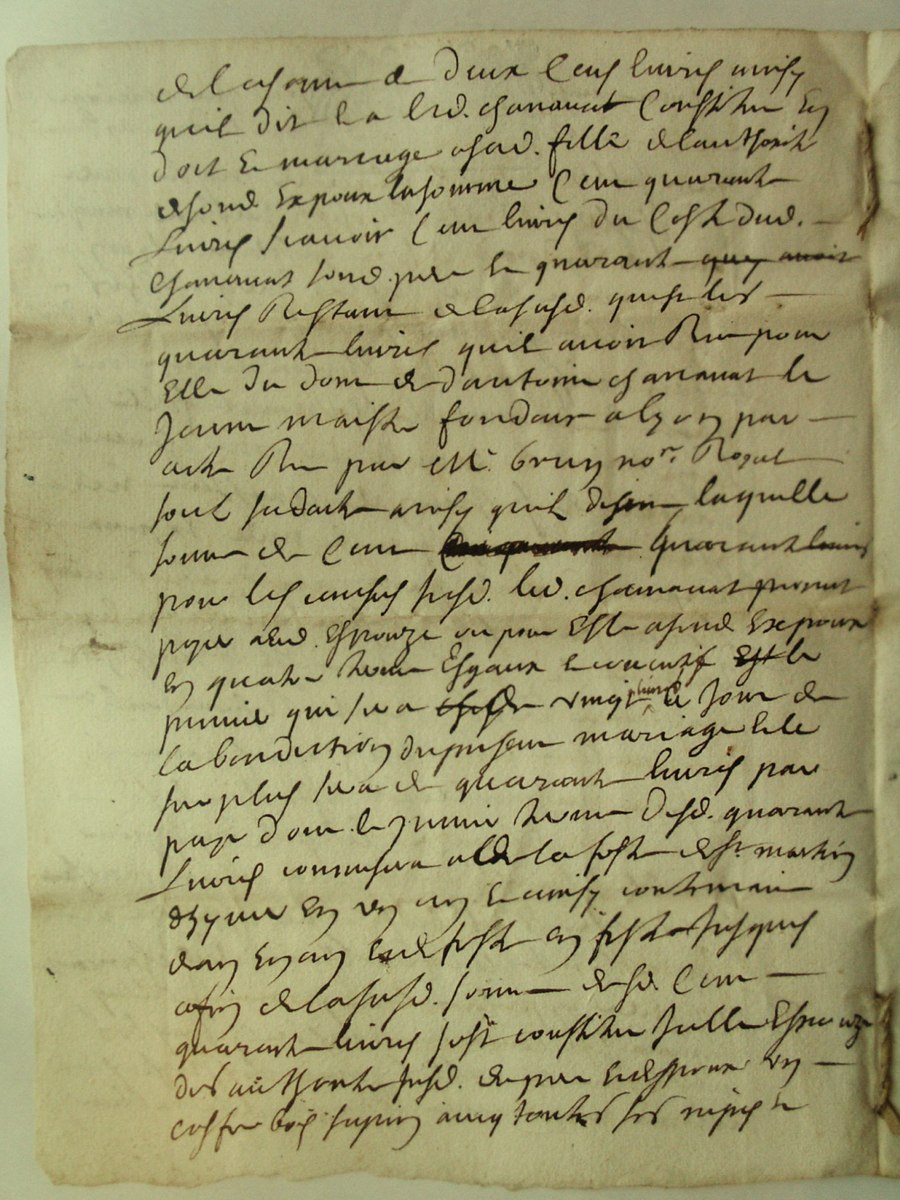 de la somme de deux cens livres ainsy
quil dit led. chanavat constitue en
dot en mariage a sad. fille de lauthorité
de sond. expoux la somme cent quarante
livres scavoir cent livres du costé dud.
chanavat sond. pere et quarante
livres restant de la susd. les
quarante livres quil avoit
elle du don de d'antoine chanavat le
jeune maistre fondeur a lyon par
acte par Me. no.re Royal
soubs sa datte ainsy quils disent laquelle
somme de cent quarante livres
pour les causes susd. led. chanavat promet
payer a lad. espouze ou pour elle a sond. expoux
en quatre termes esgaux le
premier qui sera le jour de
la benediction du present mariage et le
surplus sera de quarante livres par
paye dont le premier terme desd. quarante
livres commensera a la feste de st martin
dhyver en un an et ainsy continuera
dan en an et de feste en feste jusques
a fin de la susd. somme desd. cent
quarante livres sest constitué lad. espouze
des authorités susd. de pere et despoux un
coffre bois sapin avec toutes ses nipes et